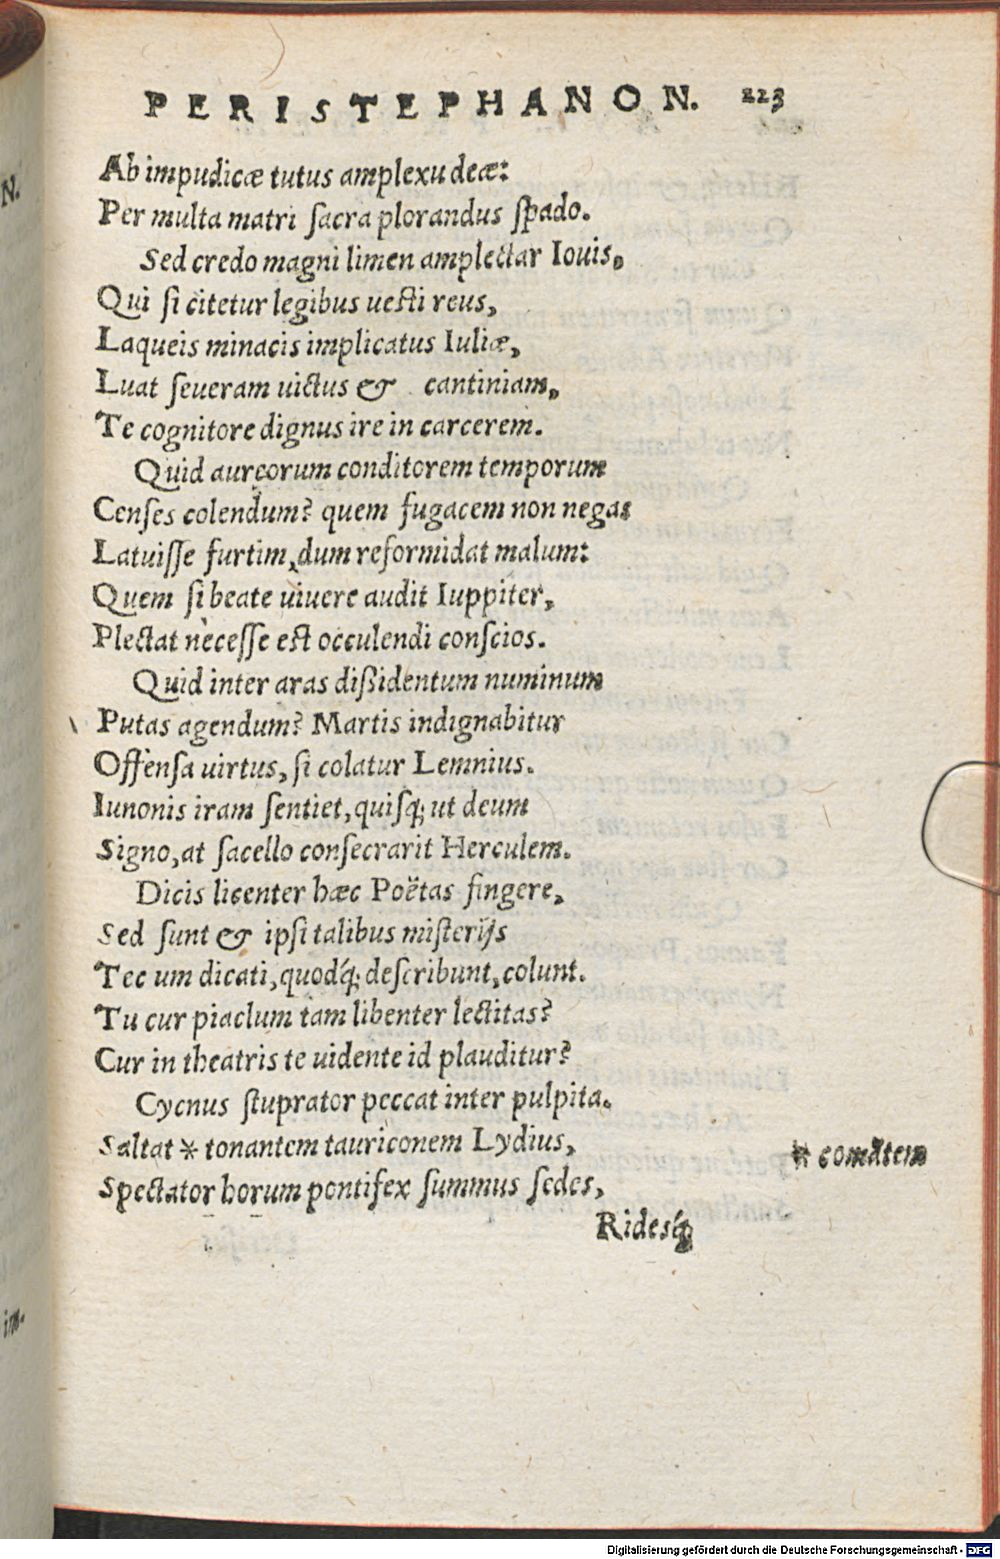 PERISTEPHANON. 223
Ab impudicæ tutus amplexu deæ:
Per multa matri ſacra plorandus ſpado.
Sed credo magni limen amplectar Iouis,
Qui ſi citetur legibus ueſti reus,
Laqueis minacis implicatus Iuliæ,
Luat ſeueram uictus & cantiniam,
Te cognitore dignus ire in carcerem.
Quid aureorum conditorem temporum
Cenſes colendum? quem fugacem non negas
Latuiſſe furtim, dum reformidat malum:
Quem ſi beate uiuere audit Iuppiter,
Plectat neceſſe eſt occulendi conſcios.
Quid inter aras dißidentum numinum
Putas agendum? Martis indignabitur
Offenſa uirtus, ſi colatur Lemnius.
Iunonis iram ſentiet, quiſq; ut deum
Signo, at ſacello conſecrarit Herculem.
Dicis licenter hæc Poëtas fingere,
Sed ſunt & ipſi talibus miſterijs
Tec um dicati, quodq́; deſcribunt, colunt.
Tu cur piaclum tam libenter lectitas?
Cur in theatris te uidente id plauditur?
Cycnus ſtuprator peccat inter pulpita.
Saltat * tonantem tauriconem Lydius,
* comãtem
Spectator horum pontifex ſummus ſedes,
Ridesq́;
N.
im-
Digitalisierung gefördert durch die Deutsche Forschungsgemeinschaft - DFG